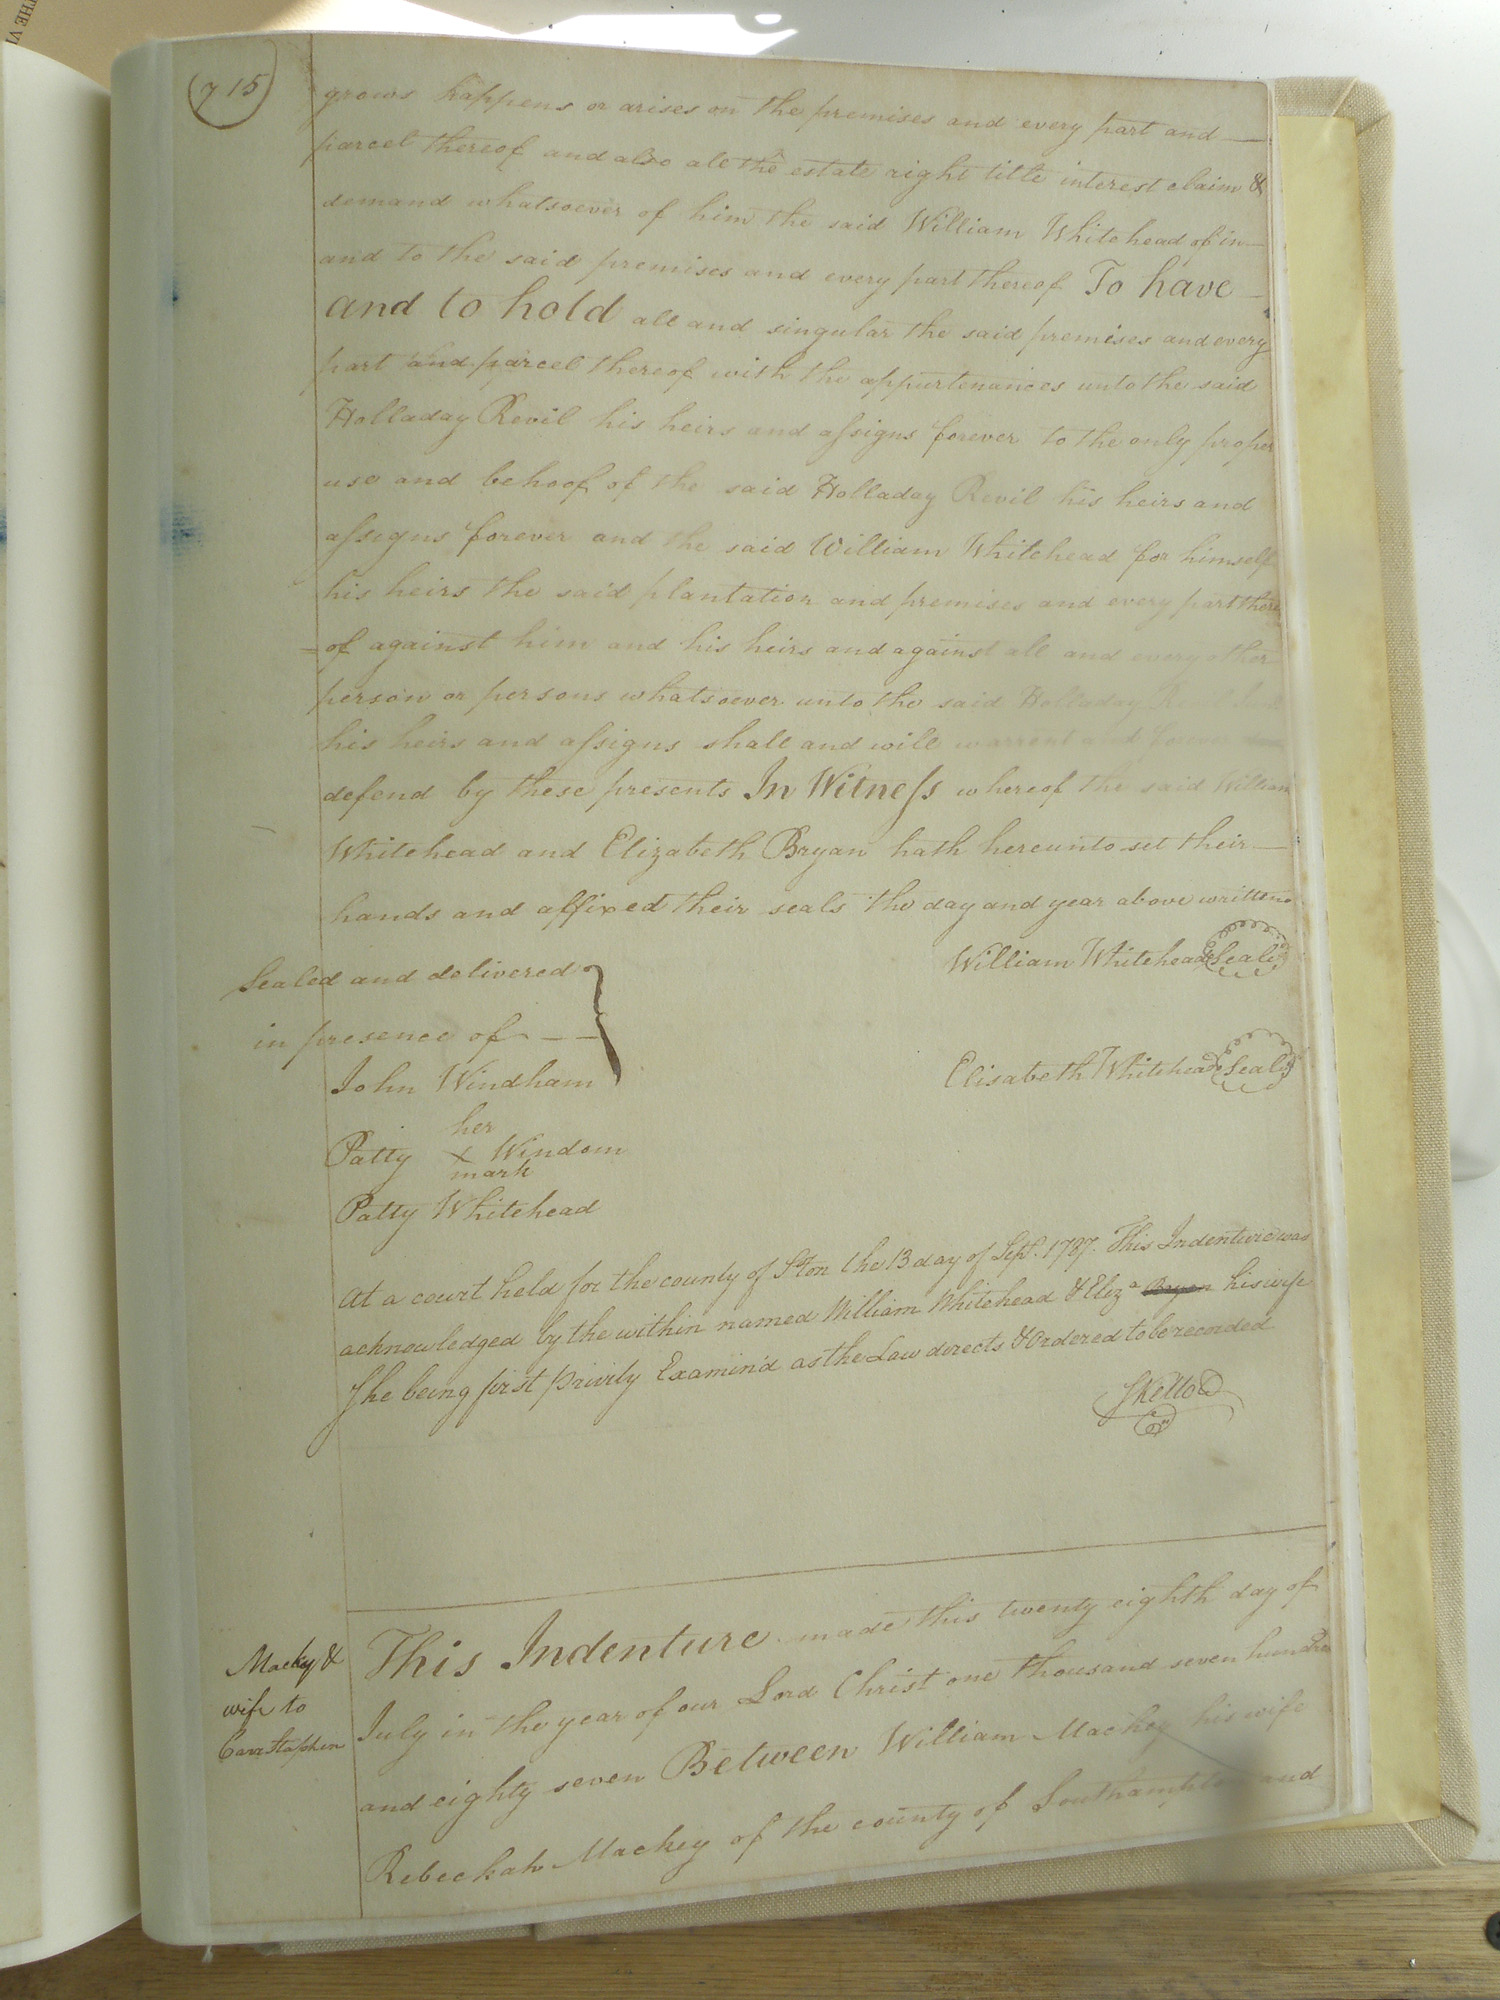 THE VI
715
grows happens or arises on the premises and every part and
parcel thereof and also all the estate right title interest claim &
demand whatsoever of him the said William Whitehead of in
and to the said premises and every part thereof To have
and to hold all and singular the said premises and every
part and parcel thereof with the appurtenances unto the said
Holladay Revil his heirs and assigns forever to the only proper
use and behoof of the said Holladay Revil his heirs and
assigns forever and the said William Whitehead for himself
his heirs the said plantation and premises and every part there
=of against him and his heirs and against all and every other
person or persons whatsoever unto the said Holladay Revil
his heirs and assigns shall and will warrant and forever
defend by these presents In Witness whereof the said William
Whitehead and Elizabeth Bryan hath hereunto set their
hands and affixed their seals the day and year above written
William Whitehead Seal
Sealed and delivered
in presence of
Elisabeth Whitehead Seal
John Windham
her
Patty x Windom
mark
Patty Whitehead
At a court held for the county of Ston the 13 day of Sept. 1787. This Indenture was
acknowledged by the within named William Whitehead & Eliza Bryan his wife
She being first privily Examin'd as the Law directs & Ordered to be recorded
SKello
Macky &
wife to
Carrstaphen
This Indenture made this twenty eighth day of
July in the year of our Lord Christ one thousand seven hundred
and eighty seven Between William Mackey his wife
Rebeckah Mackey of the county of Southampton and